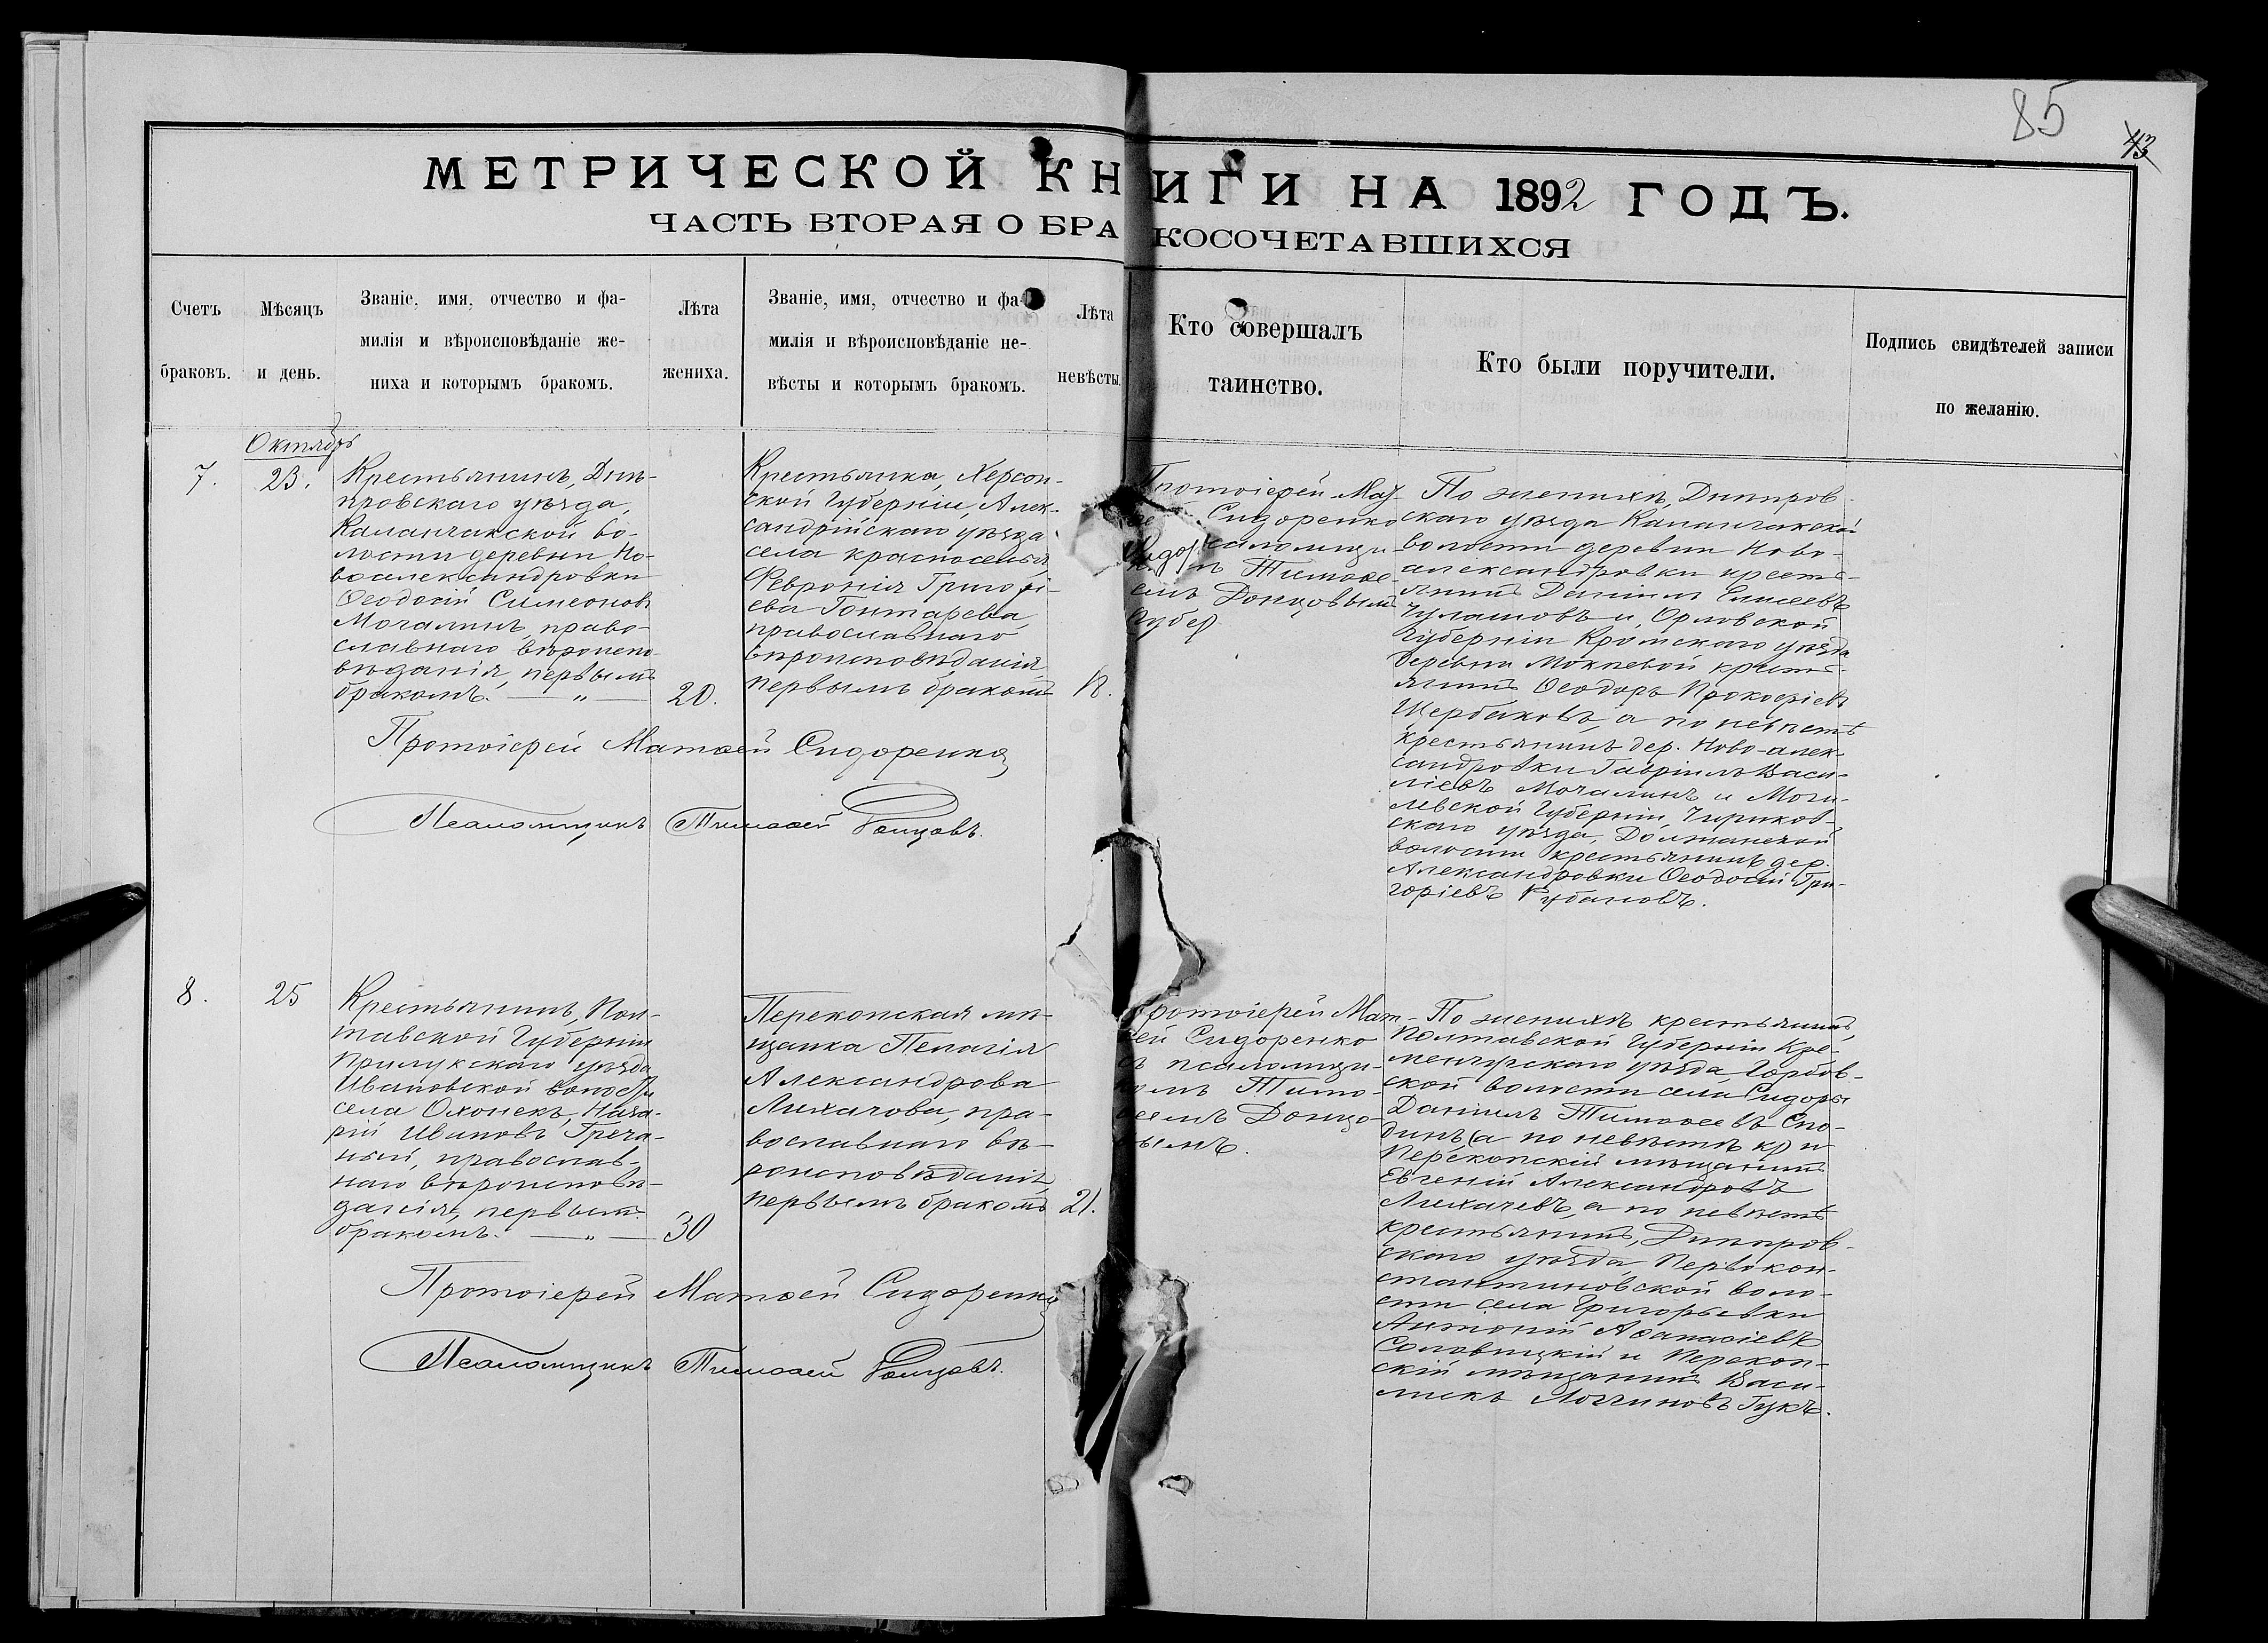 85
43
МЕТРИЧЕСКОЙ КНИГИ НА 1892 ГОДЪ.
ЧАСТЬ ВТОРАЯ О БРАКОСОЧЕТАВШИХСЯ
Счетъ
браковъ.
Мѣсяцъ
и день.
Званіе, имя, отчество и фа-
милія и вѣроисповѣданіе же-
ниха и которымъ бракомъ.
Лѣта
жениха.
Званіе, имя, отчество и фа-
милія и вѣроисповѣданіе не-
вѣсты и которымъ бракомъ.
Лѣта
невѣсты.
Кто совершалъ
таинство.
Кто были поручители.
Подпись свидѣтелей записи
по желанію.
Октябрь
7.
23.
Крестьянинъ, Днѣ-
провскаго уѣзда,
Каланчакской во-
лости деревни Но-
воалександровки
Ѳеодосій Симеоновъ
Мочалинъ, право-
славнаго вѣроиспо-
вѣданія, первымъ
бракомъ. — „ —
20.
Крестьянка, Херсон-
ской Губерніи, Алек-
сандрійскаго уѣзда
села красноселья
Февронія Григорі-
ева Гонтарева,
православнаго
вѣроисповѣданія,
первымъ бракомъ
Протоіерей Маѳ-
Сидоренко
псаломщи-
Тимоѳе-
емъ Донцовымъ
По женихѣ, Днѣпров-
скаго уѣзда Каланчакской
волости деревни Ново-
александровки кресть-
янинъ Даніилъ Елисеевъ
Чулановъ и, Орловской
Губерніи Кромскаго уѣзда
деревни Мокиевой кресть-
янинъ Ѳеодоръ Прокофіевъ
Щербаковъ, а по невѣстѣ
крестьянинъ дер. Ново-алек-
сандровки Гавріилъ Васи-
ліевъ Мочалинъ и Моги-
левской Губерніи, Чириков-
скаго уѣзда, Должанской
волости крестьянинъ дер.
Александровки Ѳеодосій Гри-
горіевъ Рубановъ.
Протоіерей Матѳей Сидоренко
Псаломщикъ Тимоѳей Донцовъ.
8.
25
Крестьянинъ, Пол-
тавской Губерніи
Прилукскаго уѣзда
Ивановской волости
села Охонекъ, Наза-
рій Ивановъ Греча-
ный, православ-
наго вѣроисповѣ-
данія, первымъ
бракомъ. — „ —
30
Перекопская мѣ-
щанка Пелагія
Александрова
Лихачова, пра-
вославнаго вѣ-
роисповѣданія,
первымъ бракомъ
21.
Протоіерей Мат-
ѳей Сидоренко
съ псаломщи-
комъ Тимо-
ѳеемъ Донцо-
вымъ.
По женихѣ крестьянинъ,
Полтавской Губерніи Кре-
менчугскаго уѣзда, Горбов-
ской волости села Сидоры
Даніилъ Тимоѳеевъ Спо-
динъ (а по невѣстѣ кр и
Перекопскій мѣщанинъ
Евгеній Александровъ
Лихачевъ, а по невѣстѣ
крестьянинъ, Днѣпров-
скаго уѣзда, Первокон-
стантиновской воло-
сти села Григорьевки
Антоній Аѳанасіевъ
Соловицкій и Перекоп-
скій мѣщанинъ Васи-
Логгиновъ Гукъ.
Протоіерей Матѳей Сидоренко
Псаломщикъ Тимоѳей Донцовъ.